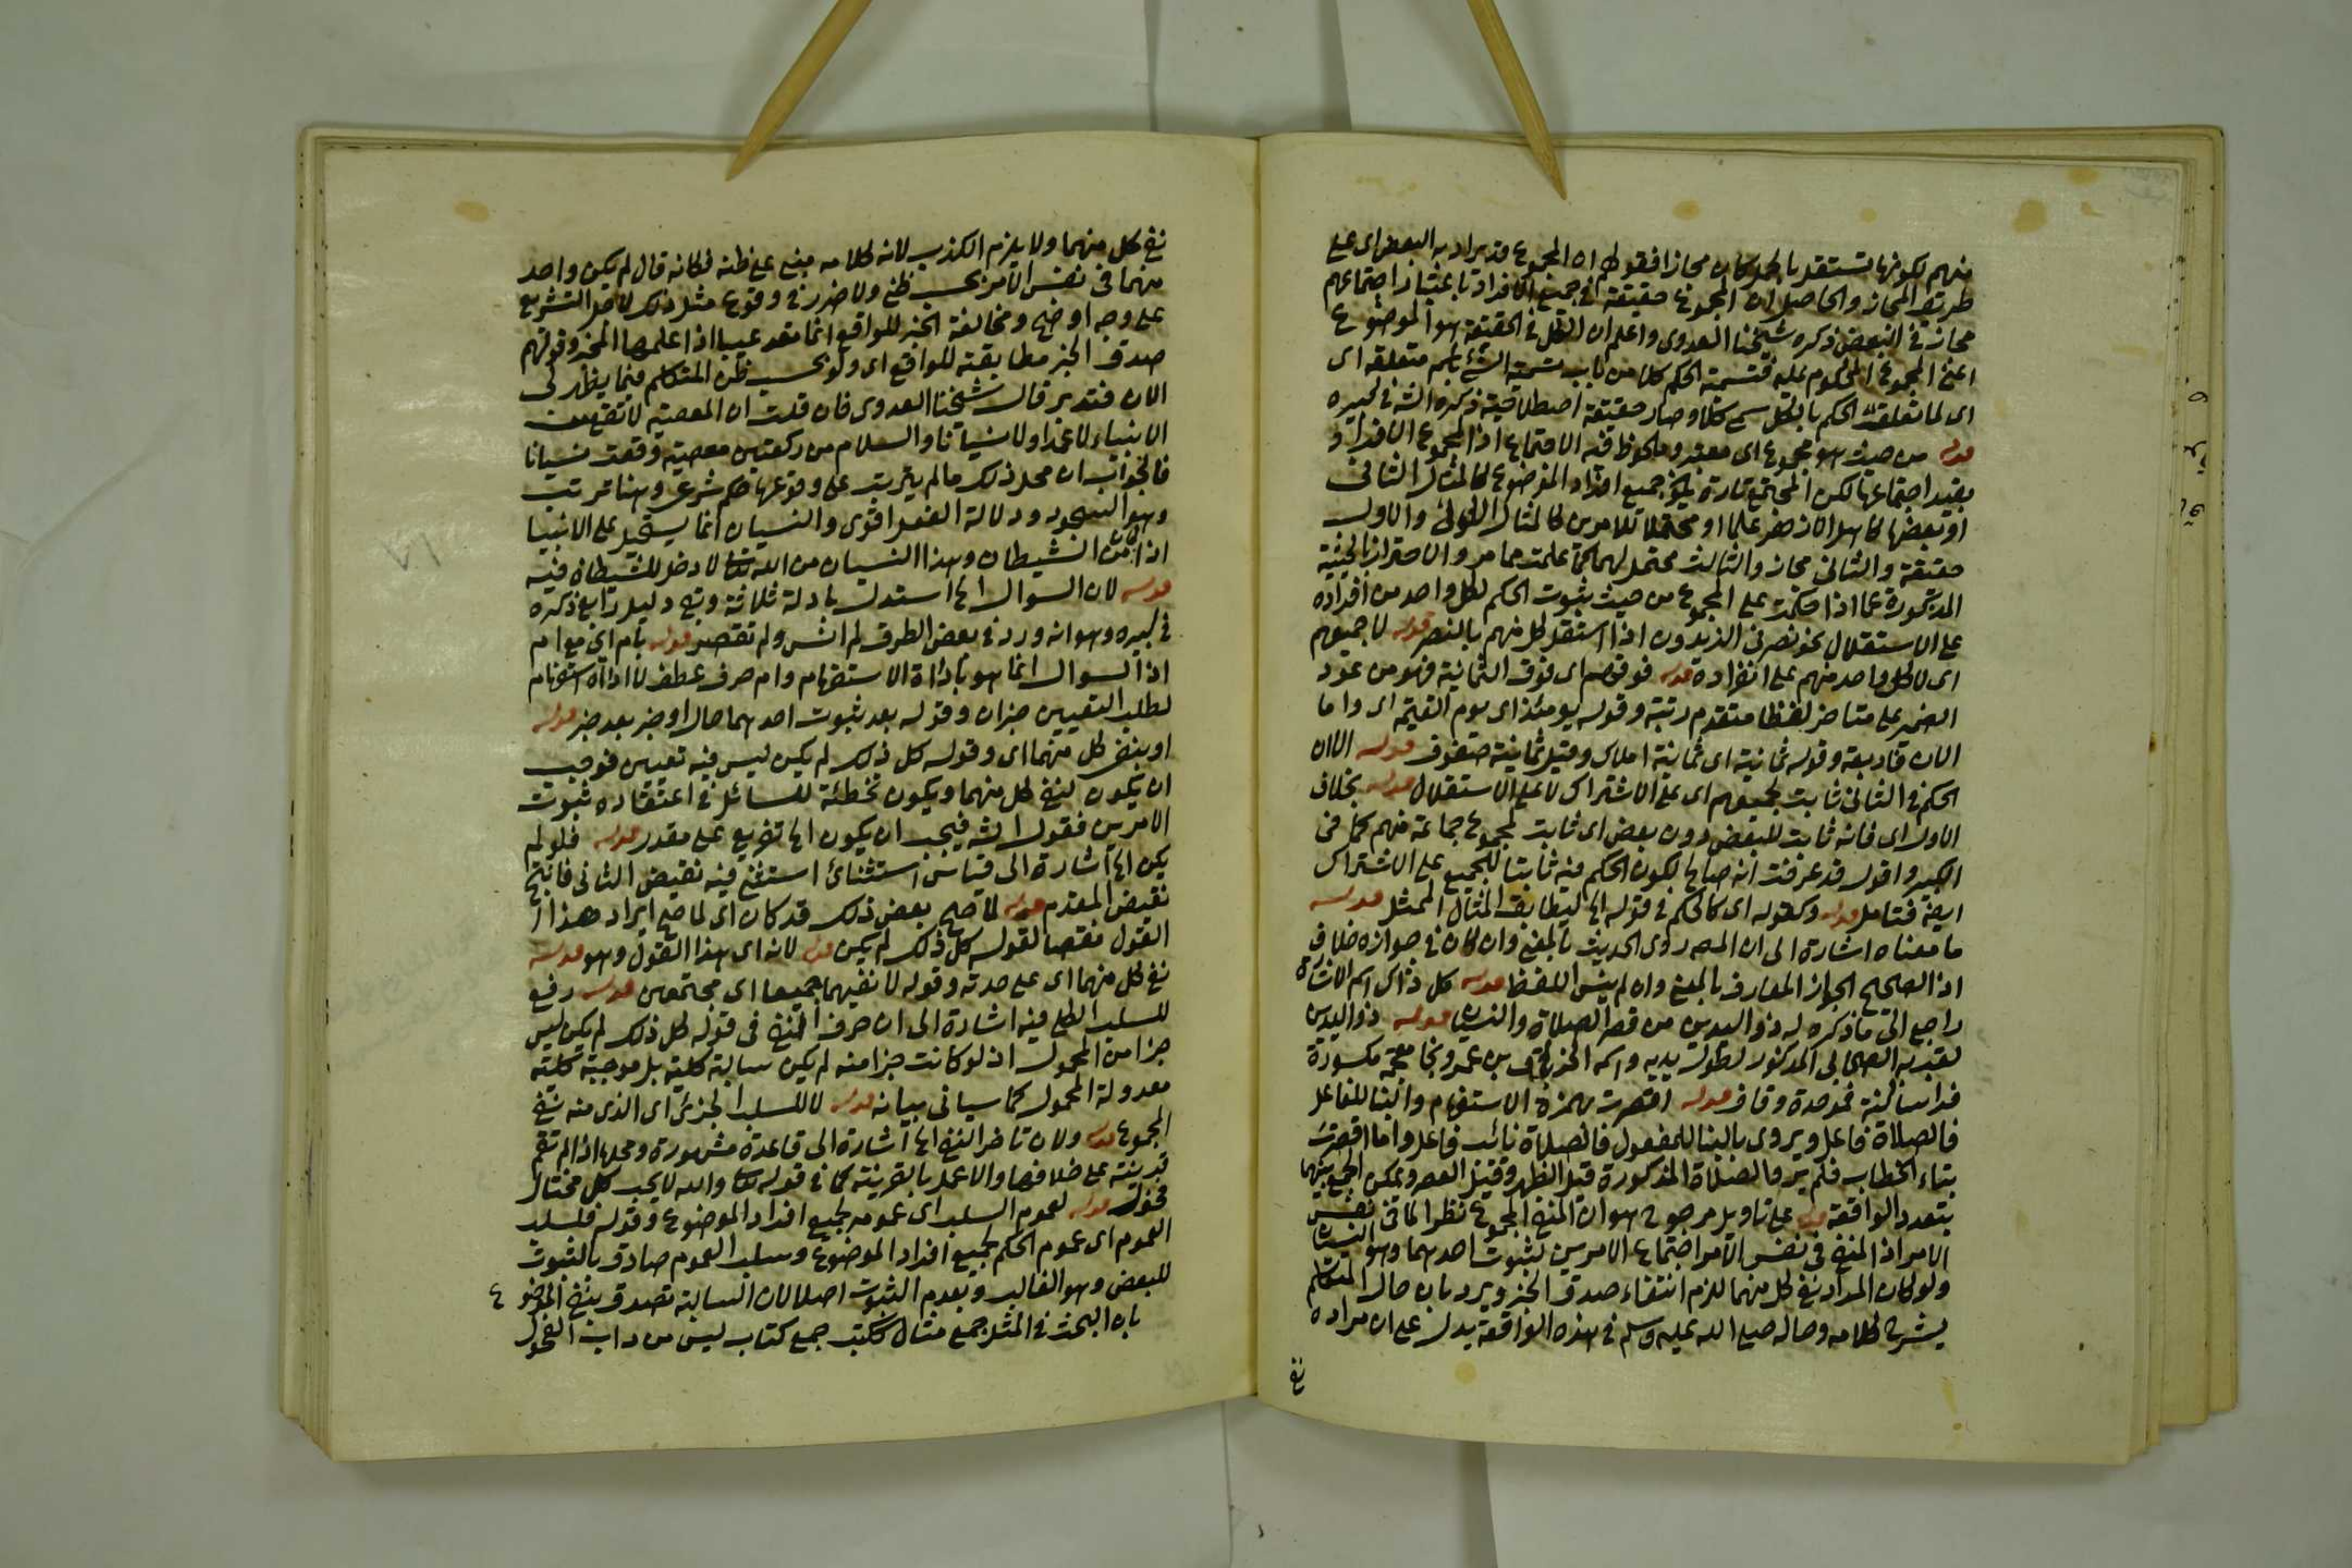 منهم لكونها تستقل بالحل كان مجازا فقولهم ان المجموع قد يراد به البعض اى على
طريق المجاز والحاصل ان المجموع حقيقة فى جميع الافراد باعتبار اجتماعهم
مجاز فى البعض ذكره شيخنا العدوى واعلم ان الكل فى الحقيقة هو الموضوع
اعنى المجموع المحكوم عليه فتسمية الحكم كلا من باب تسمية الشئ باسم متعلقه اى
اى لما تعلق الحكم بالكل سمى كلا وصار حقيقة اصطلاحية ذكره الش فى كبيره
قوله من حيث هو مجموع اى معتبر وملحوظ فيه الاجتماع اذ المجموع الافراد
بقيد اجتماعها لكن المجتمع تارة يكون جميع افراد الموضوع كالمثال الثانى
او بعضها كاهل الازهر علما او محتملا للامرين كالمثال الاول والاول
حقيقة والثانى مجاز والثالث محتمل لهما كما علمت مما مر والاحتراز بالحيثية
المذكورة عما اذا حكمت على المجموع من حيث ثبوت الحكم لكل واحد من افراده
على الاستقلال نحو نصرنى الزيدون اذا استقل كل منهم بالنصر قوله لا جميعهم
اى لا كل واحد منهم على انفراده قوله فوقهم اى فوق الثمانية فهو من عود
الضمير على متاخر لفظا متقدم رتبة وقوله يومئذ اى يوم القيمة اى واما
الان فاربعة وقوله ثمانية اى ثمانية املاك وقيل ثمانية صفوف قوله الا ان
الحكم فى الثانى ثابت لجميعهم اى على الاشتراك لا على الاستقلال قوله بخلاف
الاول اى فانه ثابت للبعض دون بعض اى ثابت لمجموع جماعة منهم كما فى
الكبير واقول قد عرفت انه صالح لكون الحكم فيه ثابتا للجميع على الاشتراك
ايضا فتامل قوله وكقوله اى كالحكم فى قوله الخ ليطابق المثال الممثل قوله
ما معناه اشارة الى ان المص روى الحديث بالمعنى وان كان فى جوازه خلاف
اذ الصحيح الجواز للعارف بالمعنى وان لم ينس اللفظ قوله كل ذاك اسم الاشارة
راجع الى ما ذكره له ذو اليدين من قصر الصلاة والنسيان قوله ذو اليدين
لقب به الصحابى المذكور لطول يديه واسمه الخرباق بن عمرو بخا معجمة مكسورة
فراء ساكنة فموحدة وقاف قوله اقصرت بهمزة الاستفهام والبنا للفاعل
فالصلاة فاعل ويروى بالبنا للمفعول فالصلاة نائب فاعل واما اقصرت
بتاء الخطاب فلم يرو والصلاة المذكورة قيل الظهر وقيل العصر ويمكن الجمع بينهما
بتعدد الواقعة قوله على تاويل مرجوح هو ان المنفى المجموع نظرا لما فى نفس
الامر اذ المنفى فى نفس الامر اجتماع الامرين لثبوت احدهما وهو النسيان
ولو كان المراد نفى كل منهما للزم انتفاء صدق الخبر ويرد بان حال المتكلم
يشرح كلامه وحاله صلى الله عليه وسلم فى هذه الواقعة يدل على ان مراده
نفى
نفى كل منهما ولا يلزم الكذب لانه كلامه مبنى على ظنه فكانه قال لم يكن واحد
منهما فى نفس الامر بحسب ظنى ولا ضرر فى وقوع مثل ذلك لاجل التشريع
على وجه اوضح ومخالفة الخبر للواقع انما تعد عيبا اذا علمها المخبر وقولهم
صدق الخبر مطابقته للواقع اى ولو بحسب ظن المتكلم فيما يظهر لى
الان فتدبر قال شيخنا العدوى فان قلت ان المعصية لا تقع من
الانبياء لا عمدا ولا نسيانا والسلام من ركعتين معصية وقعت نسيانا
فالجواب ان محل ذلك ما لم يترتب على وقوعها حكم شرعى وهنا ترتب
وهو السجود ودلالة الفعل اقوى والنسيان انما يستحيل على الانبيا
اذا كان من الشيطان وهذا النسيان من الله تعالى لا دخل للشيطان فيه
قوله لان السؤال الخ استدل بادلة ثلاثة وبقى دليل رابع ذكره
فى كبيره وهو انه ورد فى بعض الطرق لم انس ولم تقصر قوله بام اى مع ام
اذ السؤال انما هو باداة الاستفهام وام حرف عطف لا اداة استفهام
لطلب التعيين خبر ان وقوله بعد ثبوت احدهما حال او خبر بعد خبر قوله
او بنفى كل منهما اى وقوله كل ذلك لم يكن ليس فيه تعيين فوجب
ان يكون لنفى كل منهما ويكون تخطئة للسائل فى اعتقاده ثبوت
الامرين فقول الش فيجب ان يكون الخ تفريع على مقدر قوله فلو لم
يكن الخ اشارة الى قياس استثنائى استثنى فيه نقيض الثانى فانتج
نقيض المقدم قوله لما صح بعض ذلك قد كان اى لما صح ايراد هذا
القول نقضا لقوله كل ذلك لم يكن قوله لانه اى هذا القول وهو قوله
نفى كل منهما اى على حدته وقوله لا نفيهما جميعا اى مجتمعين قوله رفع
للسلب الكلى فيه اشارة الى ان حرف النفى فى قوله كل ذلك لم يكن ليس
جزا من المحمول اذ لو كانت جزا منه لم يكن سالبة كلية بل موجبة كلية
معدولة المحمول كما سياتى بيانه قوله لا للسلب الجزئى اى الذى منه نفى
المجموع قوله ولان تاخر النفى الخ اشارة الى قاعدة مشهورة ومحلها اذا لم تقم
قرينة على خلافها والا عمل بالقرينة كما فى قوله تعالى والله لا يحب كل مختال
فخور قوله لعموم السلب اى عمومه لجميع افراد الموضوع وقوله فلسلب
العموم اى عموم الحكم لجميع افراد الموضوع وسلب العموم صادق بالثبوت
للبعض وهو الغالب وبعدم الثبوت اصلا لان السالبة تصدق بنفى الموضوع
بان البحث فى المثل جمع مثال ككتب جمع كتاب ليس من داب الفحول